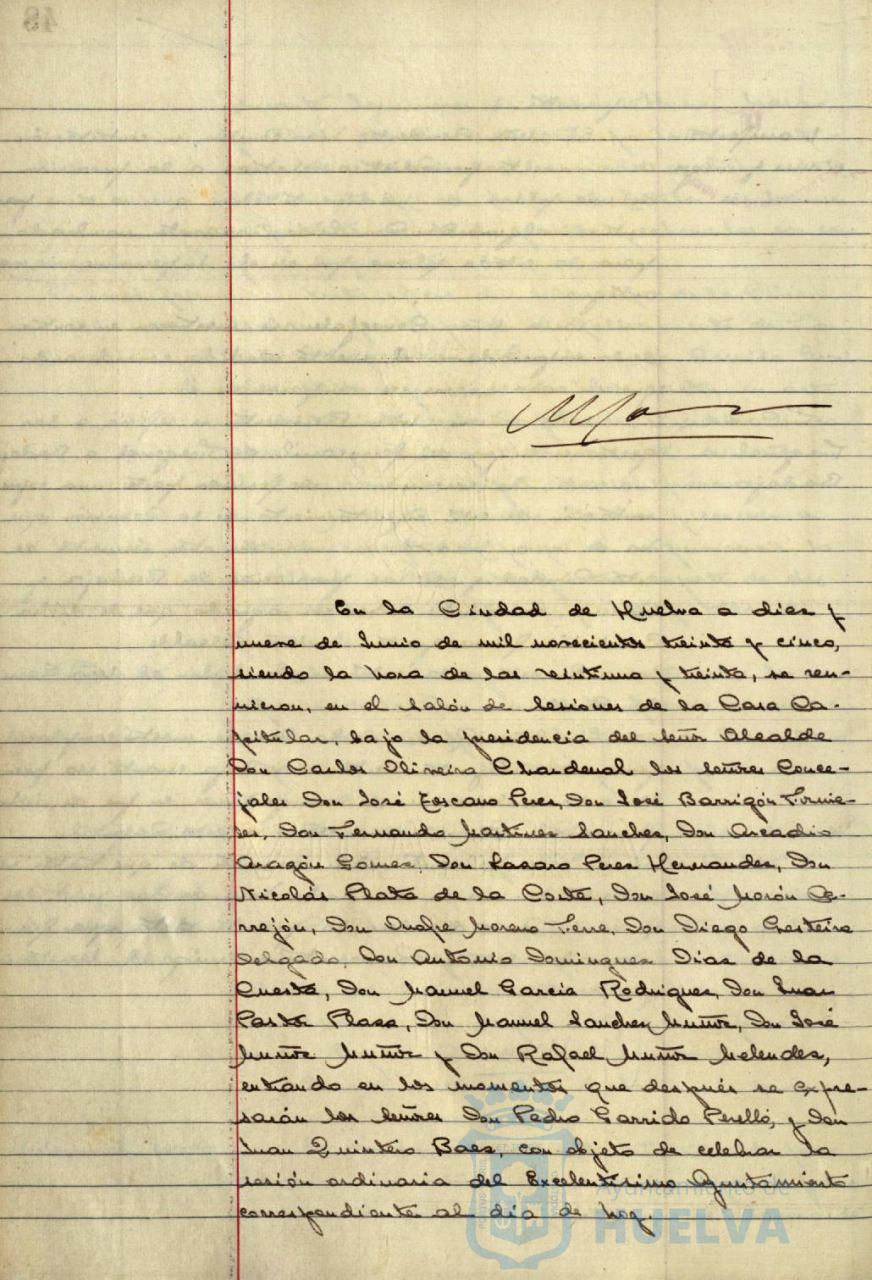 En la Ciudad de Huelva a diez y
nueve de Junio de mil novecientos treinta y cinco,
siendo la hora de las veintiuna y treinta, se reu-
nieron, en el Salón de Sesiones de la Casa Ca-
pitular, bajo la presidencia del Señor Alcalde
Don Carlos Oliveira Chardenal los Señores Conce-
jales Don José Toscano Perez, Don José Barrigón
Don Fernando Martinez Sanchez, Don Arcadio
Aragón Gomez, Don Lazaro Perez Hernandez, Don
Nicolás Plata de la Corte, Don José Morón Ce-
rrejón, Don Onofre Moreno Don Diego
Delgado, Don Antonio Dominguez Diaz de la
Cuesta, Don Manuel Garcia Rodriguez, Don Juan
Pastor Plaza, Don Manuel Sanchez Muñoz, Don José
Muñoz Muñoz y Don Rafael Muñoz Melendez,
entrando en los momentos que después se expre-
sarán los Señores Don Pedro Garrido Perelló, y Don
Juan Quintero Baez, con objeto de celebrar la
sesión ordinaria del Excelentísimo Ayuntamiento
correspondiente al día de hoy.
Ayuntamiento de
HUELVA